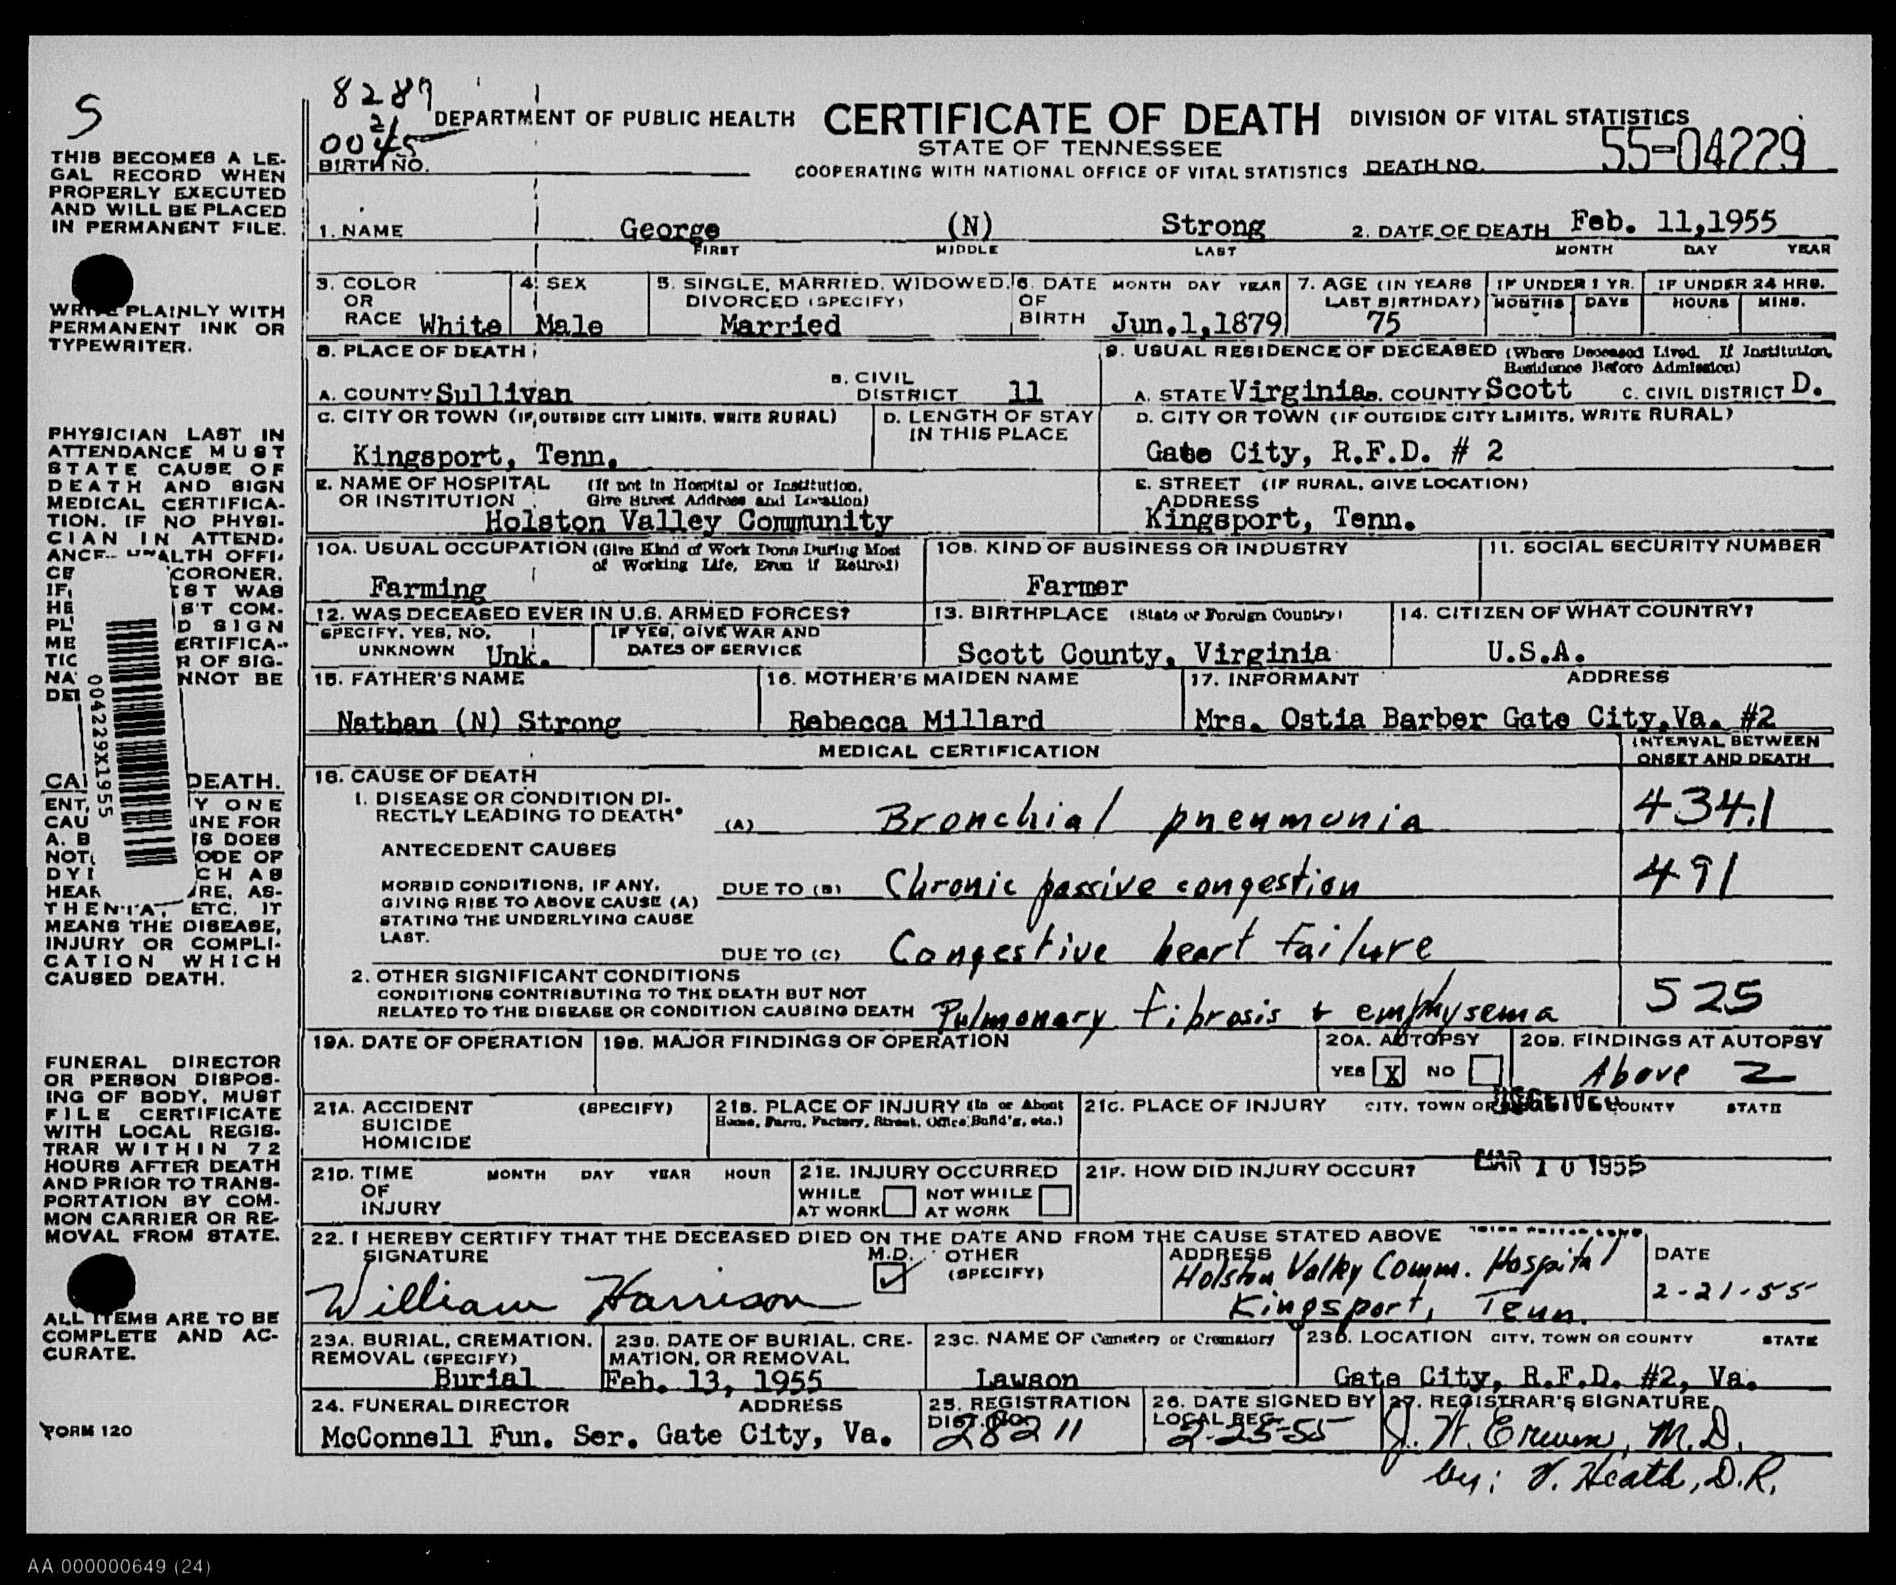 S
THIS BECOMES A LE-
GAL RECORD WHEN
PROPERLY EXECUTED
AND WILL BE PLACED
IN PERMANENT FILE.
WRITE PLAINLY WITH
PERMANENT INK OR
TYPEWRITER.
PHYSICIAN LAST IN
ATTENDANCE MUST
STATE CAUSE OF
DEATH AND SIGN
MEDICAL CERTIFICA-
TION. IF NO PHYSI-
CIAN IN ATTEND-
CORONER.
004229X1955
DEATH.
MEANS THE DISEASE,
INJURY OR COMPLI-
CATION WHICH
CAUSED DEATH.
FUNERAL DIRECTOR
OR PERSON DISPOS-
ING OF BODY, MUST
FILE CERTIFICATE
WITH LOCAL REGIS-
TRAR WITHIN 72
HOURS AFTER DEATH
AND PRIOR TO TRANS-
PORTATION BY COM-
MON CARRIER OR RE-
MOVAL FROM STATE.
ALL ITEMS ARE TO BE
COMPLETE AND AC-
CURATE.
FORM 120
8289
DEPARTMENT OF PUBLIC HEALTH CERTIFICATE OF DEATH DIVISION OF VITAL STATISTICS
STATE OF TENNESSEE
BIRTH NO. COOPERATING WITH NATIONAL OFFICE OF VITAL STATISTICS DEATH NO. 55-04229
1. NAME George (N) Strong 2. DATE OF DEATH Feb. 11,1955
FIRST MIDDLE LAST MONTH DAY YEAR
3. COLOR OR RACE White 4. SEX Male 5. SINGLE, MARRIED, WIDOWED, DIVORCED (SPECIFY) Married 6. DATE OF BIRTH MONTH DAY YEAR Jun.1,1879 7. AGE (IN YEARS LAST BIRTHDAY) 75 IF UNDER 1 YR. MONTHS DAYS IF UNDER 24 HRS. HOURS MINS.
8. PLACE OF DEATH 9. USUAL RESIDENCE OF DECEASED (Where Deceased Lived. If Institution, Residence Before Admission)
A. COUNTY Sullivan B. CIVIL DISTRICT 11 A. STATE Virginia B. COUNTY Scott C. CIVIL DISTRICT D.
C. CITY OR TOWN (IF OUTSIDE CITY LIMITS, WRITE RURAL) D. LENGTH OF STAY IN THIS PLACE D. CITY OR TOWN (IF OUTSIDE CITY LIMITS, WRITE RURAL)
Kingsport, Tenn. Gate City, R.F.D. # 2
E. NAME OF HOSPITAL OR INSTITUTION (If not in Hospital or Institution, Give Street Address and Location) E. STREET ADDRESS (IF RURAL, GIVE LOCATION)
Holston Valley Community Kingsport, Tenn.
10A. USUAL OCCUPATION (Give Kind of Work Done During Most of Working Life, Even if Retired) 10B. KIND OF BUSINESS OR INDUSTRY 11. SOCIAL SECURITY NUMBER
Farming Farmer
12. WAS DECEASED EVER IN U.S. ARMED FORCES? 13. BIRTHPLACE (State or Foreign Country) 14. CITIZEN OF WHAT COUNTRY?
SPECIFY, YES, NO, UNKNOWN Unk. IF YES, GIVE WAR AND DATES OF SERVICE Scott County, Virginia U.S.A.
15. FATHER'S NAME 16. MOTHER'S MAIDEN NAME 17. INFORMANT ADDRESS
Nathan (N) Strong Rebecca Millard Mrs. Ostia Barber Gate City,Va. #2
MEDICAL CERTIFICATION INTERVAL BETWEEN ONSET AND DEATH
18. CAUSE OF DEATH
1. DISEASE OR CONDITION DI-
RECTLY LEADING TO DEATH* (A) Bronchial pneumonia 434.1
ANTECEDENT CAUSES
MORBID CONDITIONS, IF ANY, DUE TO (B) Chronic passive congestion 491
GIVING RISE TO ABOVE CAUSE (A)
STATING THE UNDERLYING CAUSE
LAST. DUE TO (C) Congestive heart failure
2. OTHER SIGNIFICANT CONDITIONS
CONDITIONS CONTRIBUTING TO THE DEATH BUT NOT
RELATED TO THE DISEASE OR CONDITION CAUSING DEATH Pulmonary fibrosis & emphysema 525
19A. DATE OF OPERATION 19B. MAJOR FINDINGS OF OPERATION 20A. AUTOPSY 20B. FINDINGS AT AUTOPSY
YES X NO Above 2
21A. ACCIDENT SUICIDE HOMICIDE (SPECIFY) 21B. PLACE OF INJURY (In or About Home, Farm, Factory, Street, Office Build'g, etc.) 21C. PLACE OF INJURY CITY, TOWN OR COUNTY STATE
RECEIVED
21D. TIME OF INJURY MONTH DAY YEAR HOUR 21E. INJURY OCCURRED WHILE AT WORK NOT WHILE AT WORK 21F. HOW DID INJURY OCCUR? MAR 10 1955
22. I HEREBY CERTIFY THAT THE DECEASED DIED ON THE DATE AND FROM THE CAUSE STATED ABOVE
SIGNATURE M.D. ✓ OTHER (SPECIFY) ADDRESS DATE
William Harrison Holston Valley Comm. Hospital Kingsport, Tenn. 2-21-55
23A. BURIAL, CREMATION, REMOVAL (SPECIFY) 23B. DATE OF BURIAL, CRE-MATION, OR REMOVAL 23C. NAME OF Cemetery or Crematory 23D. LOCATION CITY, TOWN OR COUNTY STATE
Burial Feb. 13, 1955 Lawson Gate City, R.F.D. #2, Va.
24. FUNERAL DIRECTOR ADDRESS 25. REGISTRATION DIST. NO. 26. DATE SIGNED BY LOCAL REG. 27. REGISTRAR'S SIGNATURE
McConnell Fun. Ser. Gate City, Va. 28211 2-25-55 J. W. Erwin, M.D.
by: V. Heath, D.R.
AA 000000649 (24)